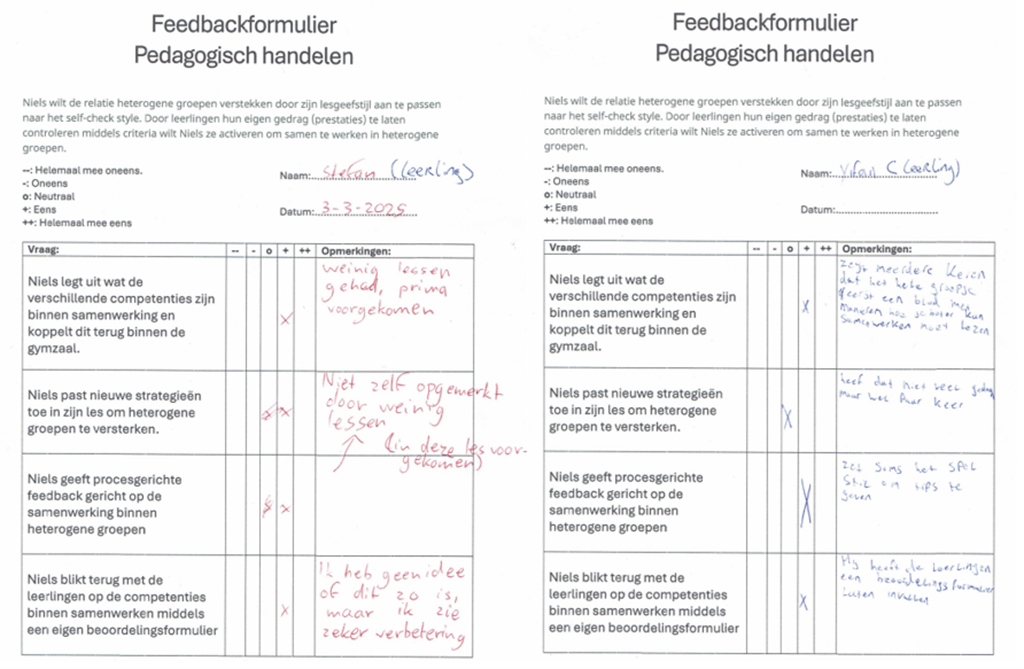 Feedbackformulier
Pedagogisch handelen
Niels wilt de relatie heterogene groepen verstekken door zijn lesgeefstijl aan te passen
naar het self-check style. Door leerlingen hun eigen gedrag (prestaties) te laten
controleren middels criteria wilt Niels ze activeren om samen te werken in heterogene
groepen.
--: Helemaal mee oneens.
-: Oneens
o: Neutraal
+: Eens
++: Helemaal mee eens
Naam: Stefan (leerling)
Datum: 3-3-2025
Vraag: -- - o + ++ Opmerkingen:
Niels legt uit wat de
verschillende competenties zijn
binnen samenwerking en
koppelt dit terug binnen de
gymzaal.
x
weinig lessen
gehad, prima
voorgekomen
Niels past nieuwe strategieën
toe in zijn les om heterogene
groepen te versterken.
x
Niet zelf opgemerkt
door weinig
lessen
(in deze les voor-
gekomen)
Niels geeft procesgerichte
feedback gericht op de
samenwerking binnen
heterogene groepen
x
Niels blikt terug met de
leerlingen op de competenties
binnen samenwerken middels
een eigen beoordelingsformulier
x
Ik heb geen idee
of dit zo is,
maar ik zie
zeker verbetering
Feedbackformulier
Pedagogisch handelen
Niels wilt de relatie heterogene groepen verstekken door zijn lesgeefstijl aan te passen
naar het self-check style. Door leerlingen hun eigen gedrag (prestaties) te laten
controleren middels criteria wilt Niels ze activeren om samen te werken in heterogene
groepen.
--: Helemaal mee oneens.
-: Oneens
o: Neutraal
+: Eens
++: Helemaal mee eens
Naam: (leerling)
Datum:
Vraag: -- - o + ++ Opmerkingen:
Niels legt uit wat de
verschillende competenties zijn
binnen samenwerking en
koppelt dit terug binnen de
gymzaal.
x
zegt meerdere keren
dat het hele groepje
eerst een blad met
manieren hoe je beter kun
samenwerken moet lezen
Niels past nieuwe strategieën
toe in zijn les om heterogene
groepen te versterken.
x
heef dat niet veel gedaan
maar wel paar keer
Niels geeft procesgerichte
feedback gericht op de
samenwerking binnen
heterogene groepen
x
zet soms het spel
stil om tips te
geven
Niels blikt terug met de
leerlingen op de competenties
binnen samenwerken middels
een eigen beoordelingsformulier
x
Hij heeft de leerlingen
een beoordelingsformulier
laten invullen